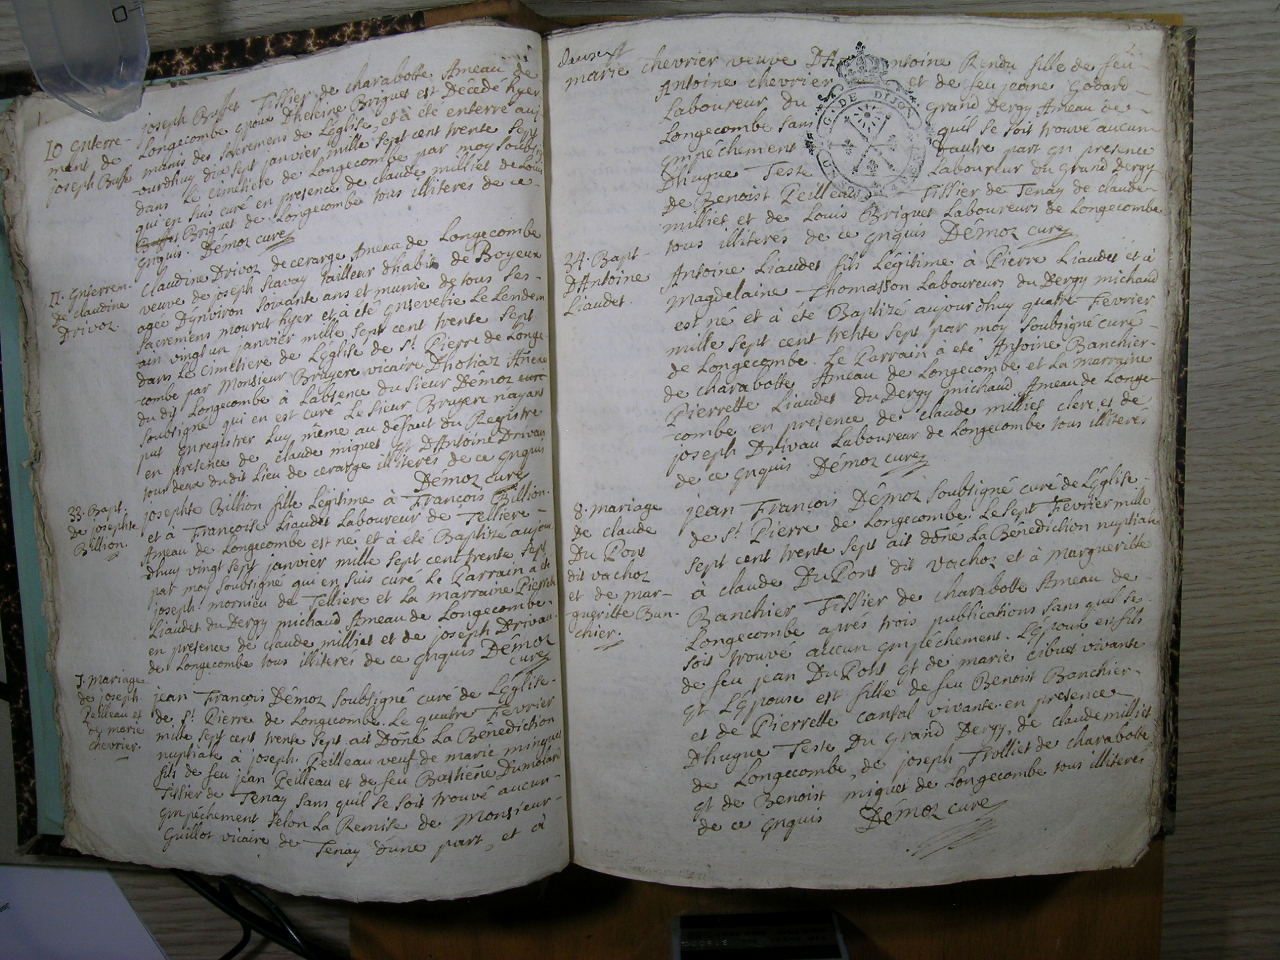 10 enterre-
ment de
joseph Buffet
joseph Buffet Tissier de charabotte Ameau de
Longecombe epoux Dheleine Briquet est decede hyer
munis des sacremens de Leglise, et à été enterré auj
ourdhuy dix sept janvier mille sept cent trente sept
dans Le cimetiere de Longecombe par moy soubsig
qui en suis curé en presence de claude milliet de Louis
Briquet de Longecombe tous illiterés de ce
gnquis. Démoz curé
11. Enterrem-
de claudine
Drivoz
Claudine Drivoz de cerarge Ameau de Longecombe
veuve de joseph Tailleur dhabis de Boyeux
agée Dynviron soixante ans et munie de tous ses
sacremens mourut hyer et à été ensevelie Le Lendem
ain vingt un janvier mille sept cent trente sept
dans Le cimetiere de Léglise de st. Pierre de Longe
combe par Monsieur Bruyere vicaire Dhotiaz Aneau
du dit Longecombe à Labsence du sieur Démoz curé
soubsigné qui en est curé Le sieur Bruyere nayant
put enregistrer Luy même au défaut du Registre
en presence de claude miquet et DAntoine Drivau
tous deux du dit Lieu de cerarge illiterés de ce gnquis
Démoz curé
33. Bapt.
de josephte
Billion.
josephte Billion fille Légitime à François Billion
et à Françoise Liaudet Laboureur de Telliere
Ameau de Longecombe est né et à été Baptizé aujou
dhuy vingt sept janvier mille sept cent trente sept
par moy soubsigné qui en suis curé Le Parrain à été
joseph mornieu de Telliere et La marraine Pierrette
Liaudet du Dergy michaud Ameau de Longecombe
en presence de claude milliet et de joseph Drivau
de Longecombe tous illiterés de ce gnquis Démoz
curé
7. mariage
de joseph
Peilleau et
de marie
chevrier.
jean François Démoz soubsigné curé de Léglise
de st. Pierre de Longecombe. Le quatre Fevrier
mille sept cent trente sept ait Doñé La Benediction
nuptiale à joseph Peilleau veuf de marie minguet
fils de feu jean Peilleau et de feu Dumolard
Tissier de Tenay sans quil se soit trouvé aucun
gmpéchement selon La Remise de Monsieur
Guillot vicaire de Tenay dune part, et à
marie chevrier veuve DAntoine Rendu fille de feu
Antoine chevrier et de feu jeane Godard
Laboureur du grand Dergy Ameau de
Longecombe sans quil se soit trouvé aucun
gmpéchement dautre part en presence
Dhugue Teste Laboureur du Grand Dergy
de Benoist Peilleau Tissier de Tenay de claude
milliet et de Louis Briquet Laboureurs de Longecombe
tous illiterés de ce gnquis Démoz curé
34. Bapt.
DAntoine
Liaudet.
Antoine Liaudet fils Légitime à Pierre Liaudet et à
Magdelaine Thomasson Laboureurs du Dergy michaud
est né et à été Baptizé aujourdhuy quatre Fevrier
mille sept cent trente sept par moy soubsigné curé
de Longecombe. Le Parrain à été Antoine Banchier
de charabotte Ameau de Longecombe et La marraine
Pierrette Liaudet du Dergy michaud Ameau de Longe-
combe en presence de claude milliet clerc et de
joseph Drivau Laboureur de Longecombe tous illiterés
de ce gnquis Démoz curé
8. mariage
de claude
Du Pont
dit vachoz
et de mar-
gueritte Ban-
chier.
jean François Démoz soubsigné curé de Léglise
de st. Pierre de Longecombe. Le sept Fevrier mille
sept cent trente sept ait doñé La Bénédiction nuptiale
à claude Du Pont dit vachoz et à Margueritte
Banchier Tissier de charabotte Ameau de
Longecombe apres trois publications sans quil se
soit trouvé aucun gmpéchement. Lépoux est fils
de feu jean Du Pont et de marie vivante
et Lépouse est fille de feu Benoist Banchier
et de Pierrette cantal vivante. en presence
Dhugue Teste Du Grand Dergy, de claude milliet
de Longecombe, de joseph Trolliet de charabotte
et de Benoist miquet de Longecombe tous illiterés
de ce gnquis Démoz curé